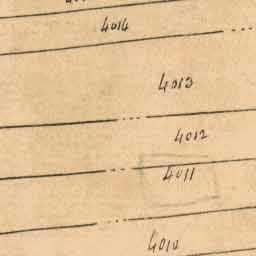 4014
4013
4012
4011
4010